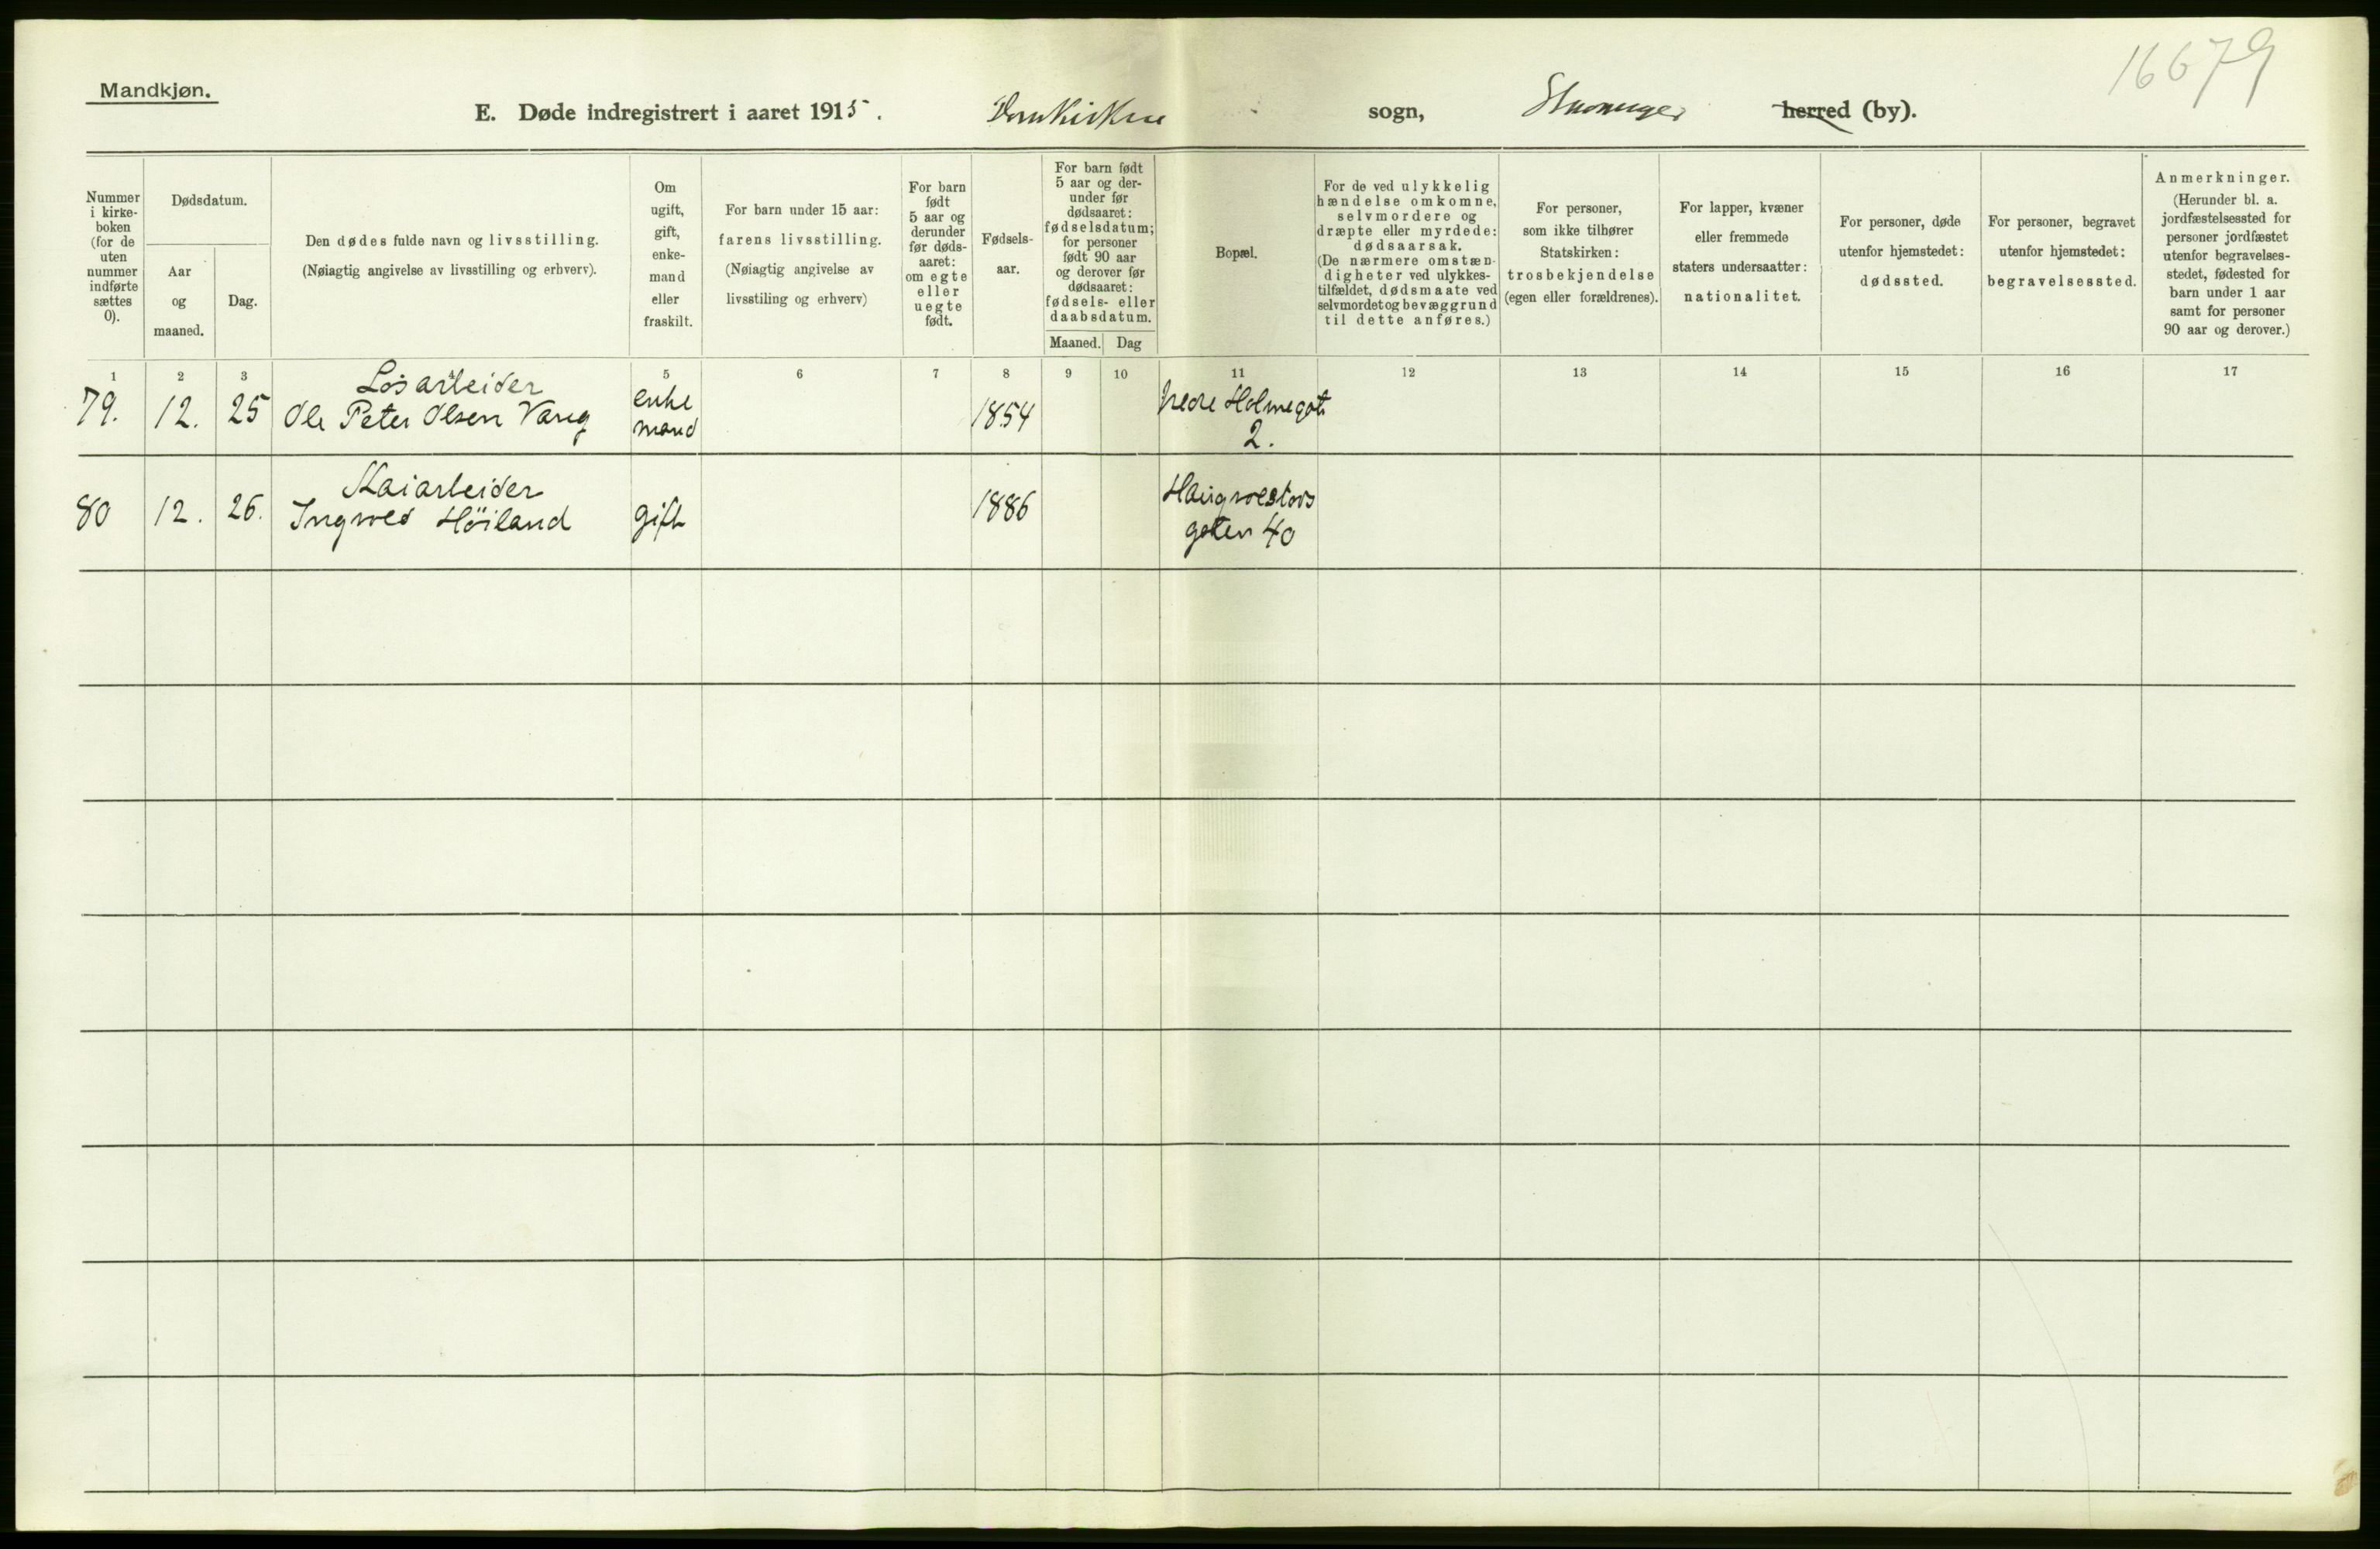 16679
Mandkjøn.
E. Døde indregistrert i aaret 1915. Domkirkens sogn, Stavanger herred (by).
Nummer
i kirke-
boken
(for de
uten
nummer
indførte
sættes
0).
Dødsdatum.
Aar
og
maaned.
Dag.
Den dødes fulde navn og livsstilling.
(Nøiagtig angivelse av livsstilling og erhverv).
Om
ugift,
gift,
enke-
mand
eller
fraskilt.
For barn under 15 aar:
farens livsstilling.
(Nøiagtig angivelse av
livsstiling og erhverv)
For barn
født
5 aar og
derunder
før døds-
aaret:
om egte
eller
uegte
født.
Fødsels-
aar.
For barn født
5 aar og der-
under før
dødsaaret:
fødselsdatum;
for personer
født 90 aar
og derover før
dødsaaret:
fødsels- eller
daabsdatum.
Maaned. Dag
Bopæl.
For de ved ulykkelig
hændelse omkomne,
selvmordere og
dræpte eller myrdede:
dødsaarsak.
(De nærmere omstæn-
digheter ved ulykkes-
tilfældet, dødsmaate ved
selvmordet og bevæggrund
til dette anføres.)
For personer,
som ikke tilhører
Statskirken:
trosbekjendelse
(egen eller forældrenes).
For lapper, kvæner
eller fremmede
staters undersaatter:
nationalitet.
For personer, døde
utenfor hjemstedet:
dødssted.
For personer, begravet
utenfor hjemstedet:
begravelsessted.
Anmerkninger.
(Herunder bl. a.
jordfæstelsessted for
personer jordfæstet
utenfor begravelses-
stedet, fødested for
barn under 1 aar
samt for personer
90 aar og derover.)
1 2 3 4 5 6 7 8 9 10 11 12 13 14 15 16 17
79. 12. 25
Løsarbeider
Ole Peter Olsen Vang
enke
mand
1854
Nedre Holmegate
2.
80 12. 26.
Kaiarbeider
Ingvald Höiland
gift
1886
Haugvaldstads
gaten 40